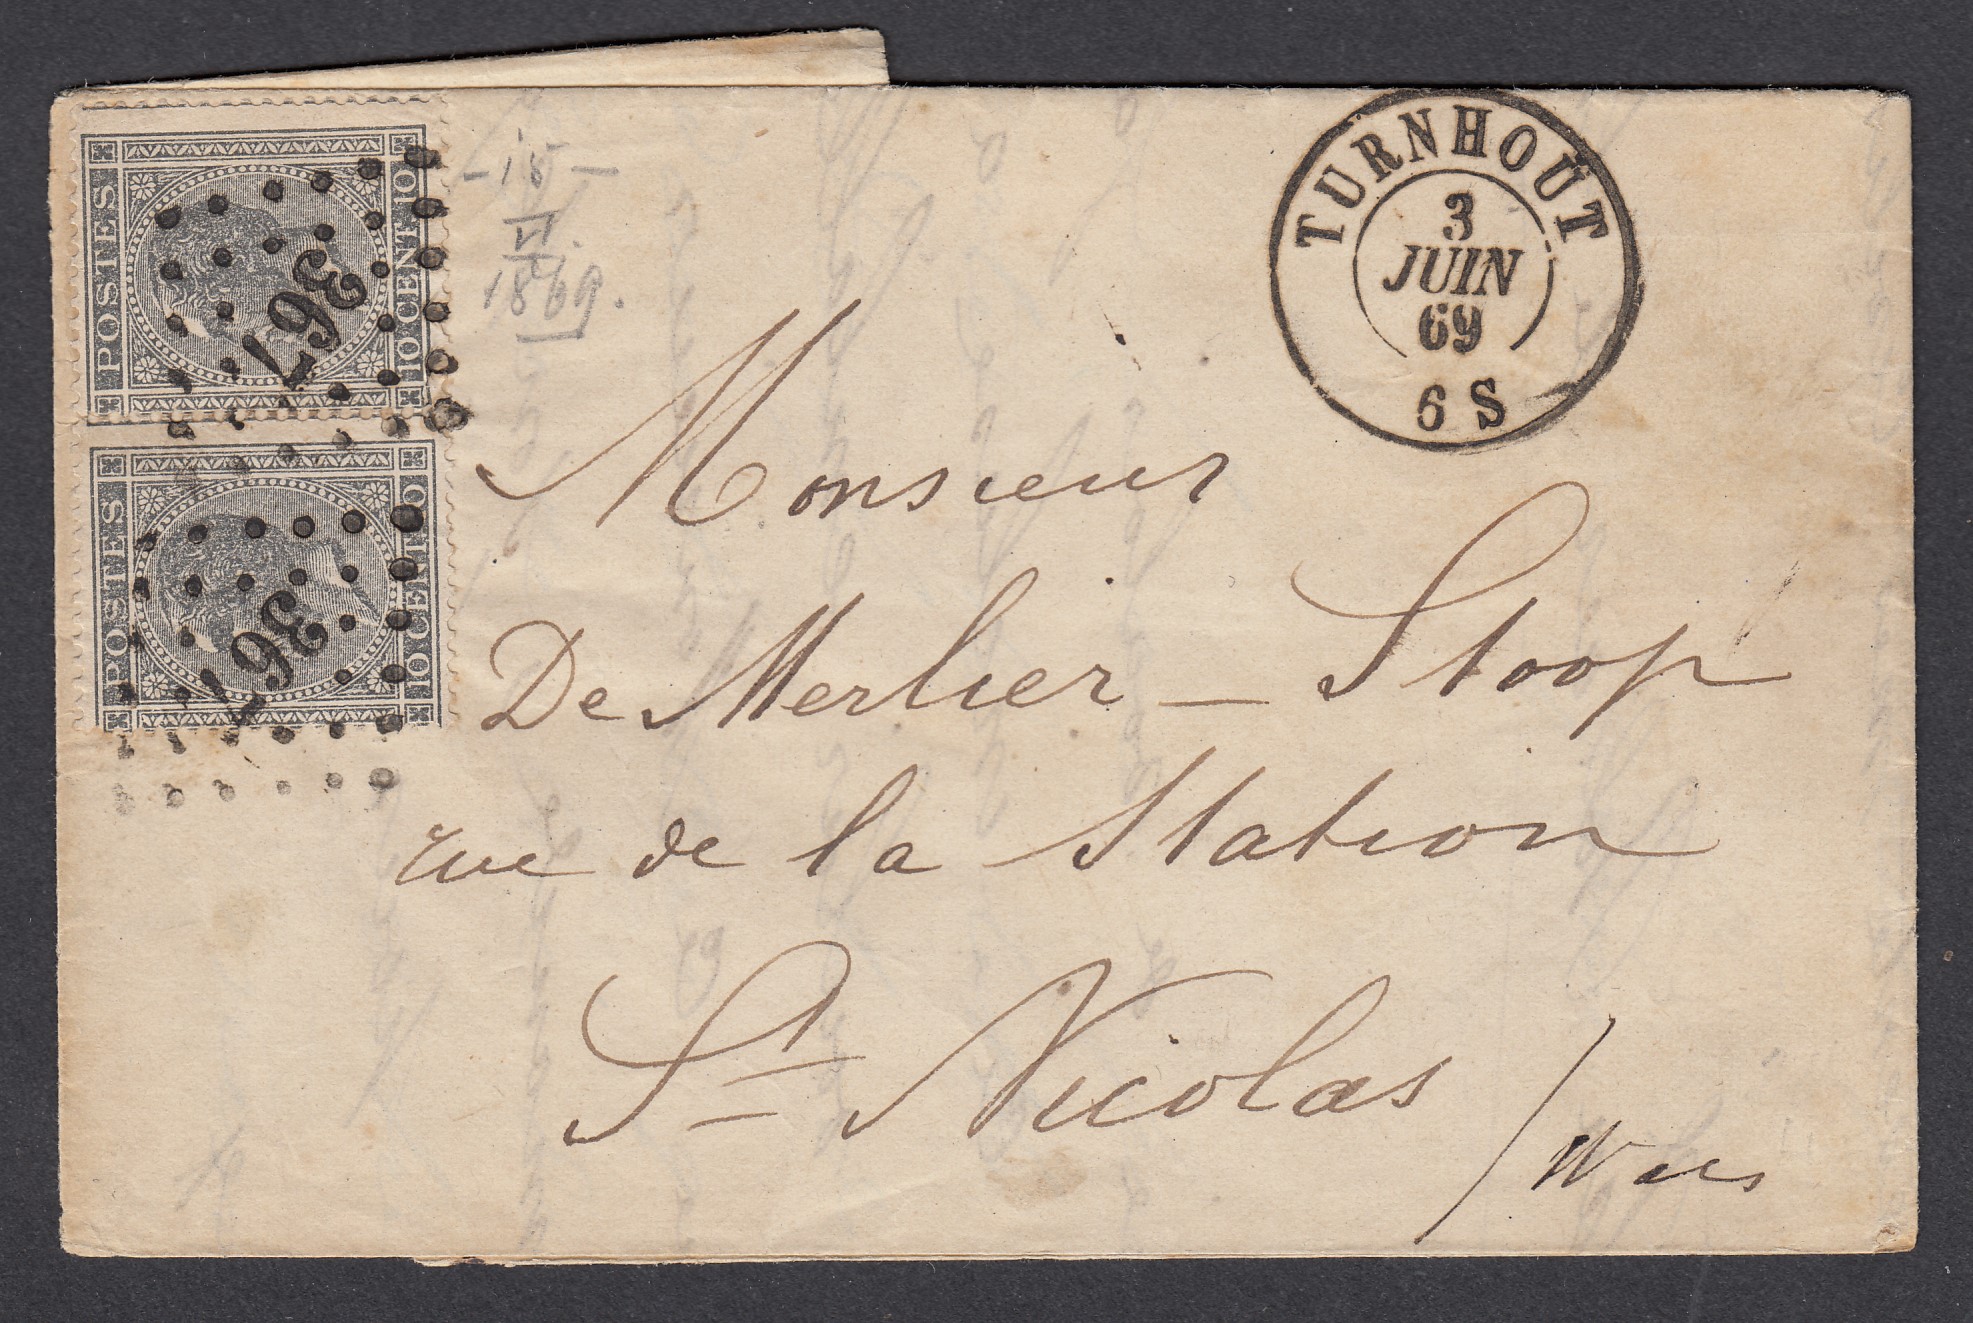 POSTES
10 CENT 10
367
POSTES
10 CENT 10
367
1869.
TURNHOUT
3
JUIN
69
6 S
Monsieur
De Merlier - Stoop
rue de la Station
St Nicolas
/ Waes